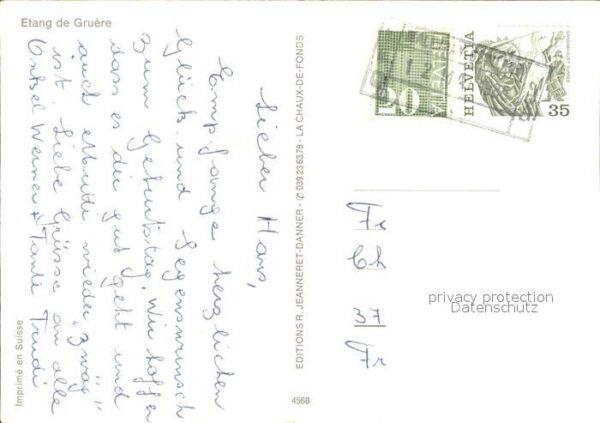 Etang de Gruère
Lieber Hans,
Empfange herzlichen
Glück- und Segenswunsch
zum Geburtstag. Wir hoffen
dass es dir gut geht und
auch Trudi wieder „zwäg"
ist. Liebe Grüsse an alle
Onkel Werner + Tante Trudi
Imprimé en Suisse
EDITIONS R. JEANNERET-DANNER - ✆ 039 23 63 78 - LA CHAUX-DE-FONDS
4568
HELVETIA
HELVETIA
35
Fr
Ch
37
Fr
privacy protection
Datenschutz